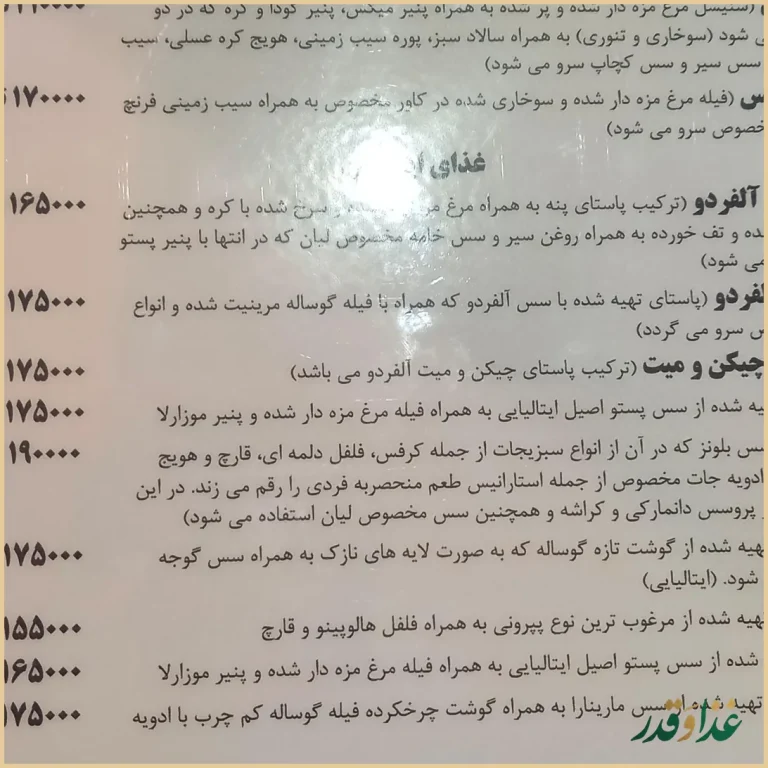 (شنیسل مرغ مزه دار شده و پر شده به همراه پنیر میکس، پنیر گودا و کره که در دو
ی شود (سوخاری و تنوری) به همراه سالاد سبز، پوره سیب زمینی، هویج کره عسلی، سیب
سس سیر و سس کچاپ سرو می شود)
س (فیله مرغ مزه دار شده و سوخاری شده در کاور مخصوص به همراه سیب زمینی فرنچ ۱۷۰۰۰۰
خصوص سرو می شود)
غذای
آلفردو (ترکیب پاستای پنه به همراه مرغ و سرخ شده با کره و همچنین ۱۶۵۰۰۰
ده و تف خورده به همراه روغن سیر و سس خامه مخصوص لیان که در انتها با پنیر پستو
می شود)
لفردو (پاستای تهیه شده با سس آلفردو که همراه با فیله گوساله مرینیت شده و انواع ۱۷۵۰۰۰
س سرو می گردد)
چیکن و میت (ترکیب پاستای چیکن و میت آلفردو می باشد) ۱۷۵۰۰۰
یه شده از سس پستو اصیل ایتالیایی به همراه فیله مرغ مزه دار شده و پنیر موزارلا ۱۷۵۰۰۰
سس بلونز که در آن از انواع سبزیجات از جمله کرفس، فلفل دلمه ای، قارچ و هویج ۱۹۰۰۰۰
ادویه جات مخصوص از جمله استارانیس طعم منحصربه فردی را رقم می زند. در این
پروسس دانمارکی و کراشه و همچنین سس مخصوص لیان استفاده می شود)
هیه شده از گوشت تازه گوساله که به صورت لایه های نازک به همراه سس گوجه ۱۷۵۰۰۰
شود. (ایتالیایی)
هیه شده از مرغوب ترین نوع پپرونی به همراه فلفل هالوپینو و قارچ ۱۵۵۰۰۰
شده از سس پستو اصیل ایتالیایی به همراه فیله مرغ مزه دار شده و پنیر موزارلا ۱۶۵۰۰۰
تهیه شده از سس مارینارا به همراه گوشت چرخکرده فیله گوساله کم چرب با ادویه ۱۷۵۰۰۰
غذا و قدر